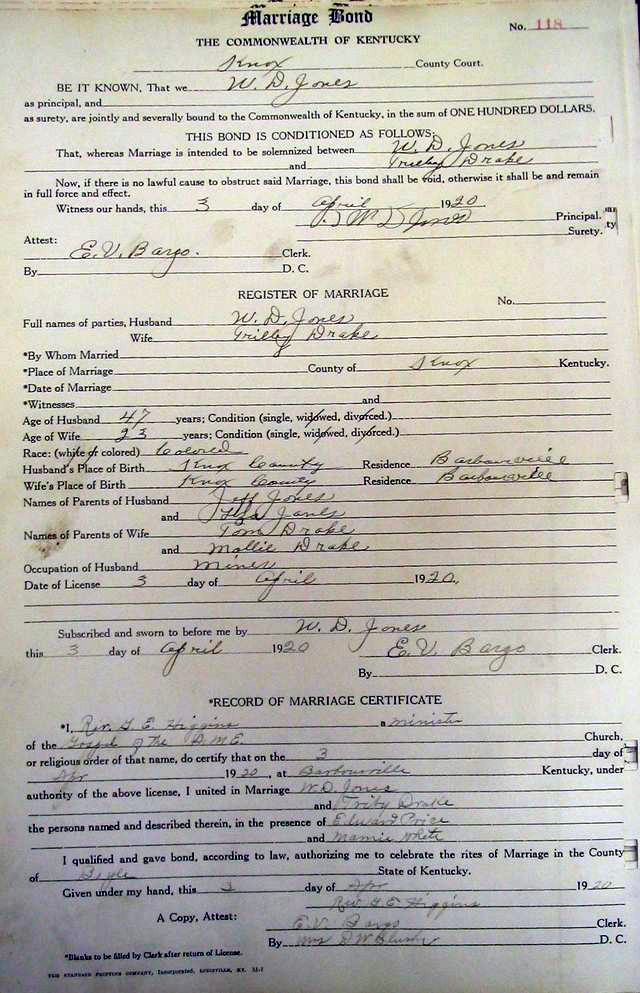 Marriage Bond
No. 118
THE COMMONWEALTH OF KENTUCKY
Knox County Court.
BE IT KNOWN, That we W. D. Jones
as principal, and
as surety, are jointly and severally bound to the Commonwealth of Kentucky, in the sum of ONE HUNDRED DOLLARS.
THIS BOND IS CONDITIONED AS FOLLOWS:
That, whereas Marriage is intended to be solemnized between W. D. Jones
and Trilley Drake
Now, if there is no lawful cause to obstruct said Marriage, this bond shall be void, otherwise it shall be and remain
in full force and effect.
Witness our hands, this 3 day of April 1920
W D Jones Principal.
Surety.
Attest:
E. V. Bargo. Clerk.
By D. C.
REGISTER OF MARRIAGE
No.
Full names of parties, Husband W. D. Jones
Wife Trilley Drake
*By Whom Married
*Place of Marriage County of Knox Kentucky.
*Date of Marriage
*Witnesses and
Age of Husband 47 years; Condition (single, widowed, divorced.)
Age of Wife 23 years; Condition (single, widowed, divorced.)
Race: (white or colored) Colored
Husband's Place of Birth Knox County Residence Barbourville
Wife's Place of Birth Knox County Residence Barbourville
Names of Parents of Husband Jeff Jones
and Jones
Names of Parents of Wife Tom Drake
and Mollie Drake
Occupation of Husband Miner
Date of License 3 day of April 1920.
Subscribed and sworn to before me by W. D. Jones
this 3 day of April 1920 E. V. Bargo Clerk.
By D. C.
*RECORD OF MARRIAGE CERTIFICATE
*I, Rev. G. E. Higgins a minister
of the Gospel of the A.M.E. Church,
or religious order of that name, do certify that on the 3 day of
Apr 1920, at Barbourville Kentucky, under
authority of the above license, I united in Marriage W. D. Jones
and Drake
the persons named and described therein, in the presence of Edward Price
and Mamie White
I qualified and gave bond, according to law, authorizing me to celebrate the rites of Marriage in the County
of State of Kentucky.
Given under my hand, this 3 day of Apr 1920
Rev G. E. Higgins
A Copy, Attest: E. V. Bargo Clerk.
By Mrs D. W. D. C.
*Blanks to be filled by Clerk after return of License.
THE STANDARD PRINTING COMPANY, Incorporated, LOUISVILLE, KY.